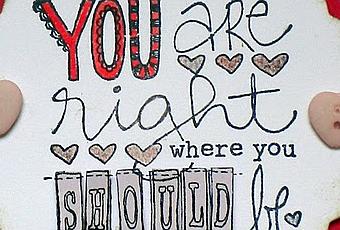 YOU are
right
where you
SHOULD be